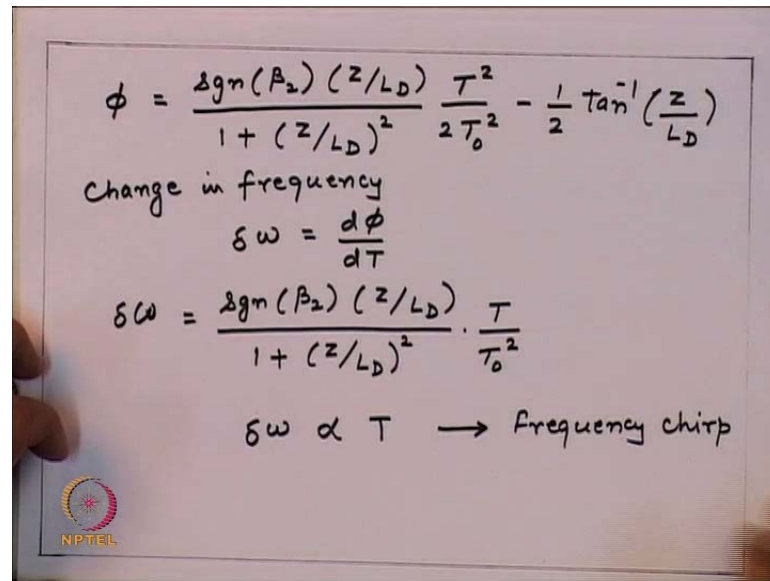 ϕ = sgn(β₂) (z/L_D) / 1 + (z/L_D)² T² / 2T₀² - 1/2 tan⁻¹ (z/L_D)
Change in frequency
δω = dϕ/dT
δω = sgn(β₂) (z/L_D) / 1 + (z/L_D)² · T / T₀²
δω ∝ T → Frequency chirp
NPTEL